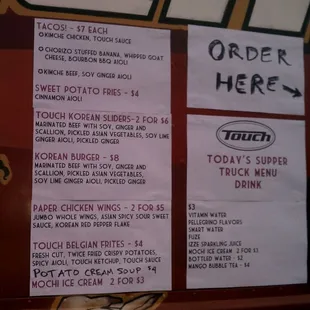 TACOS! - $7 EACH
KIMCHE CHICKEN, TOUCH SAUCE
CHORIZO STUFFED BANANA, WHIPPED GOAT
CHEESE, BOURBON BBQ AIOLI
KIMCHE BEEF, SOY GINGER AIOLI
SWEET POTATO FRIES - $4
CINNAMON AIOLI
TOUCH KOREAN SLIDERS-2 FOR $6
MARINATED BEEF WITH SOY, GINGER AND
SCALLION, PICKLED ASIAN VEGETABLES, SOY LIME
GINGER AIOLI, PICKLED GINGER
KOREAN BURGER - $8
MARINATED BEEF WITH SOY, GINGER AND
SCALLION, PICKLED ASIAN VEGETABLES,
SOY LIME GINGER AIOLI, PICKLED GINGER
PAPER CHICKEN WINGS - 2 FOR $5
JUMBO WHOLE WINGS, ASIAN SPICY SOUR SWEET
SAUCE, KOREAN RED PEPPER FLAKE
TOUCH BELGIAN FRITES - $4
FRESH CUT, TWICE FRIED CRISPY POTATOES,
SPICY AIOLI, TOUCH KETCHUP, TOUCH SAUCE
POTATO CREAM SOUP $4
MOCHI ICE CREAM 2 FOR $3
ORDER
HERE
Touch
TODAY'S SUPPER
TRUCK MENU
DRINK
$3
VITAMIN WATER
PELLEGRINO FLAVORS
SMART WATER
FUZE
IZZE SPARKLING JUICE
MOCHI ICE CREAM 2 FOR $3
BOTTLED WATER - $2
MANGO BUBBLE TEA - $4